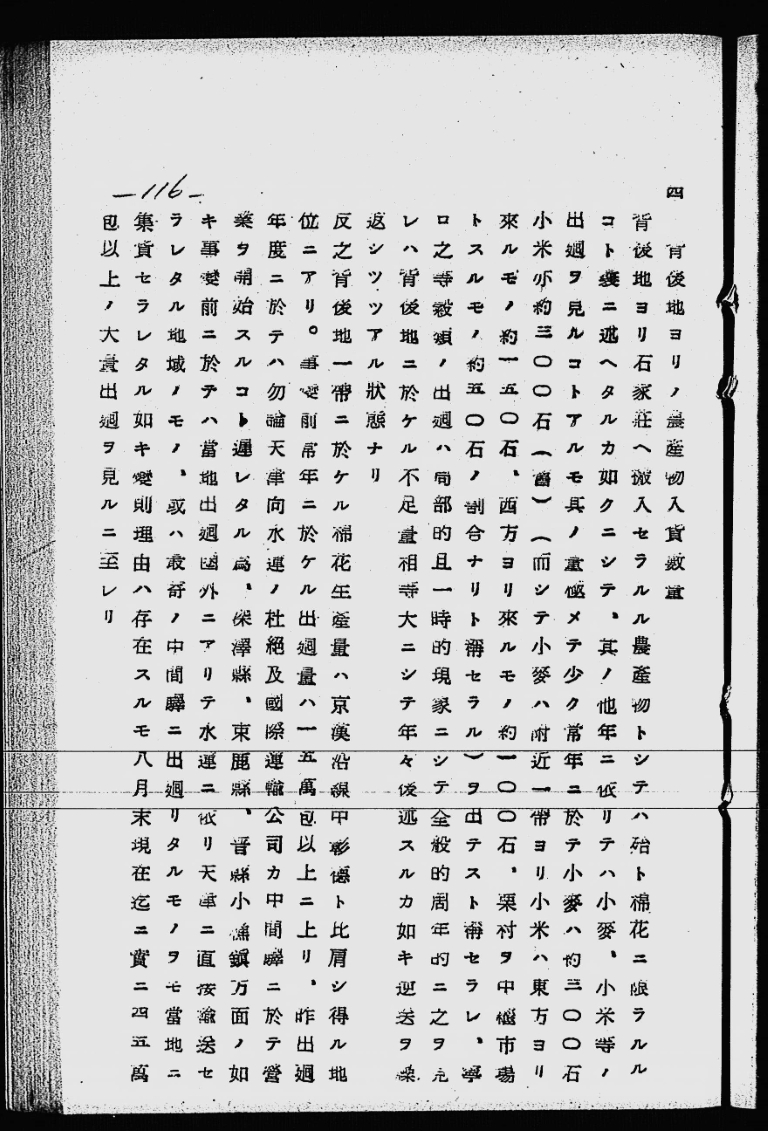 四　背後地ヨリノ農產物入貨數量
背後地ヨリ石家莊ヘ搬入セラルル農產物トシテハ殆ト棉花ニ限ラルル
コト曩ニ述ヘタルカ如クニシテ、其ノ他年ニ依リテハ小麥、小米等ノ
出廻ヲ見ルコトアルモ其ノ量極メテ少ク常年ニ於テ小麥ハ約三〇〇石
小米亦約三〇〇石（舊）（而シテ小麥ハ附近一帶ヨリ小米ハ東方ヨリ
來ルモノ約一五〇石、西方ヨリ來ルモノ約一〇〇石、栗村ヲ中極市場
トスルモノ約五〇石ノ割合ナリト稱セラル）ヲ出テスト稱セラレ、寧
ロ之等穀類ノ出廻ハ局部的且一時的現象ニシテ全般的周年的ニ之ヲ見
レハ背後地ニ於ケル不足量相等大ニシテ年々後述スルカ如キ逆送ヲ繰
返シツツアル狀態ナリ
反之背後地一帶ニ於ケル棉花生產量ハ京漢沿線中彰德ト比肩シ得ル地
位ニアリ。事變前常年ニ於ケル出廻量ハ一五萬包以上ニ上リ、昨出廻
年度ニ於テハ勿論天津向水運ノ杜絕及國際運輸公司カ中間驛ニ於テ營
業ヲ開始スルコト遲レタル為、深澤縣、東鹿縣、晋縣小樵鎭方面ノ如
キ事變前ニ於テハ當地出廻圈外ニアリテ水運ニ依リ天津ニ直接輸送セ
ラレタル地域ノモノ、或ハ最寄ノ中間驛ニ出廻リタルモノヲモ當地ニ
集貨セラレタル如キ變則理由ハ存在スルモ八月末現在迄ニ實ニ四五萬
包以上ノ大量出廻ヲ見ルニ至レリ
-116-